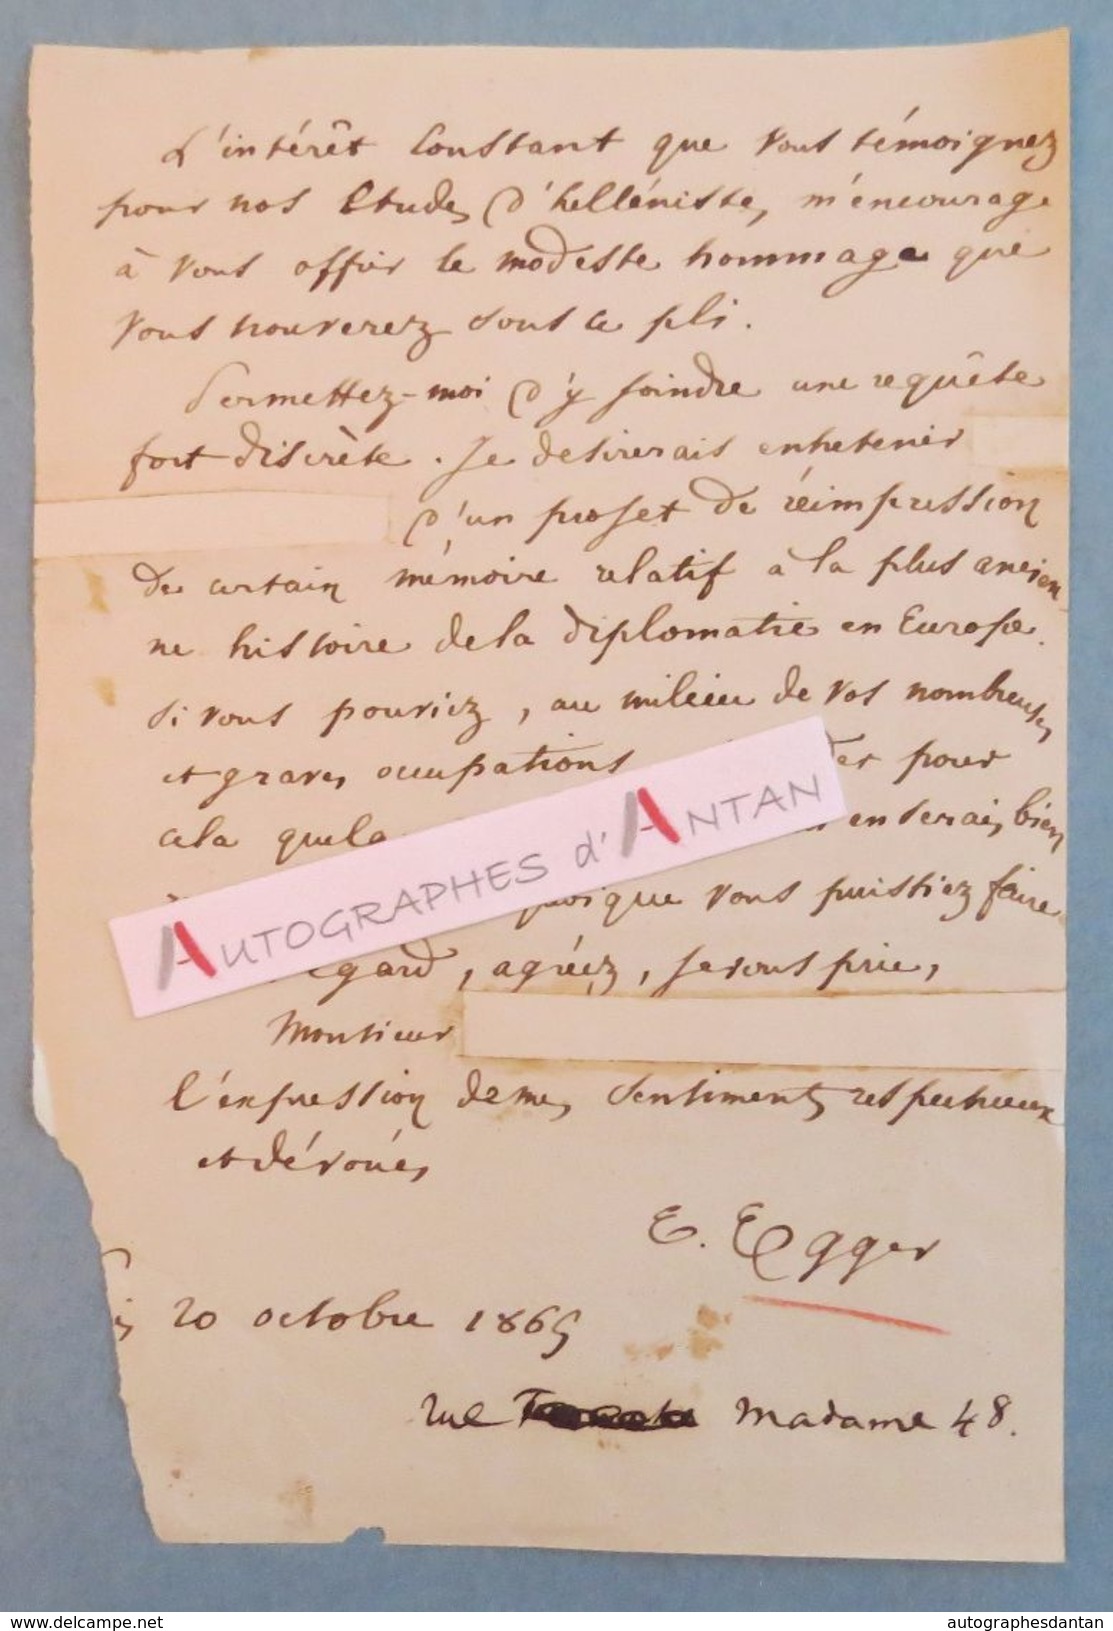 L'intérêt Constant que vous témoignez
pour nos Etudes d'hellénistes, m'encourage
à vous offrir le modeste hommage que
vous trouverez sous ce pli.
Permettez-moi d'y joindre une requête
fort discrète. Je desirerais entretenir
d'un projet de réimpression
de certain mémoire relatif à la plus ancien-
ne histoire de la diplomatie en Europe.
Si vous pouviez, au milieu de vos nombreuses
et graves occupations pour
cela quelq en serais bien
quoique vous puissiez faire
égard, agréez, je vous prie,
Monsieur
l'expression de mes sentiments respectueux
et dévoués
E. Egger
is 20 octobre 1865
rue Madame 48.
AUTOGRAPHES d'ANTAN
www.delcampe.net
autographesdantan